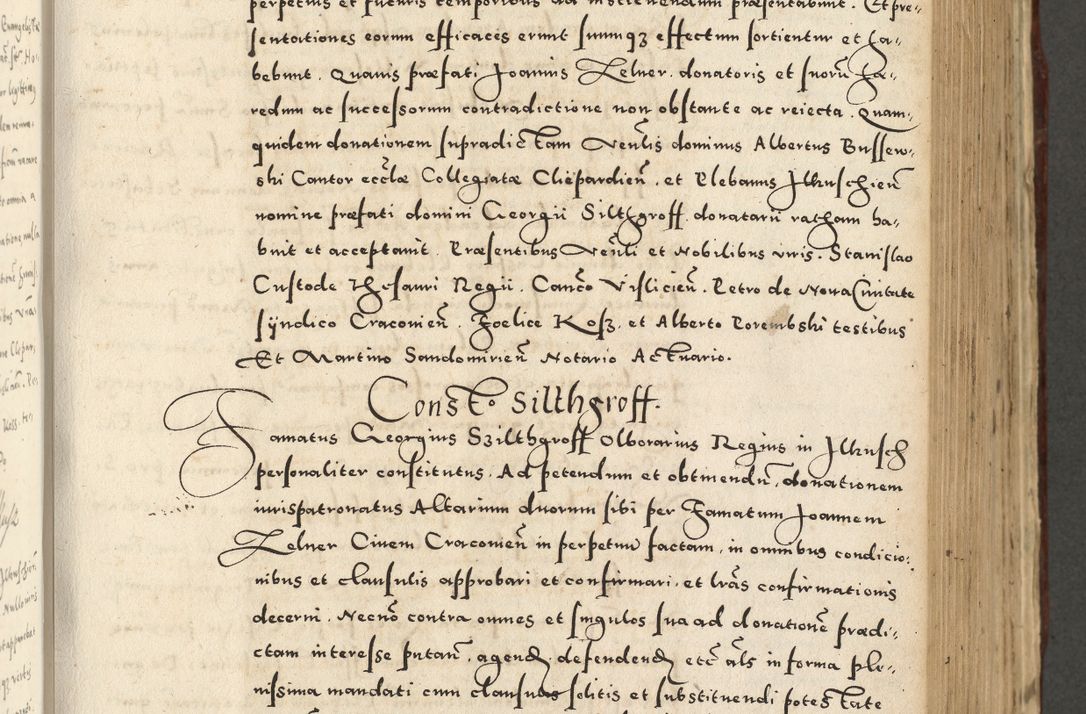 perpetuis et futuris temporibus ad instituendum præsentabunt. Et præ-
sentationes eorum efficaces erunt suumqꝫ effectum sortientur et ha-
bebunt. Quavis præfati Joannis Zelner donatoris et suorū hæ-
redum ac successorum contradictione non obstante ac reiecta. Quam-
quidem donationem supradictam Venlis dominus Albertus Bussew-
ski Cantor ecclæ Collegiatæ Clepardien̄. et Plebanus Jlkuschien̄
nomine præfati domini Georgii Silthgroff donatarii ratham ha-
buit et acceptauit. Præsentibus Venli et Nobilibus viris. Stanislao
Custode Thesauri Regii. Canco Vislicien̄. Petro de Noua Ciuitate
sÿndico Cracouien̄. Foelice Kosz. et Alberto Porembski testibus
Et Martino Sandomirien̄ Notario Actuario.
Consto Silthgroff.
Famatus Georgius Szilthgroff Olborarius Regius in Jlkusch
personaliter constitutus. Ad petendum et obtinendū. donationem
iurispatronatus Altarium duorum sibi per Famatum Joannem
Zelner Ciuem Cracouien̄ in perpetuū factam, in omnibus condicio-
nibus et clausulis approbari et confirmari. et lrās confirmationis
decerni. Necnō contra omnes et singulos sua ad donationē prædi-
ctam interesse putan̄. agend. defendend etc̄ āls in forma ple-
nissima mandati cum clausulis solitis et substituendi potestate